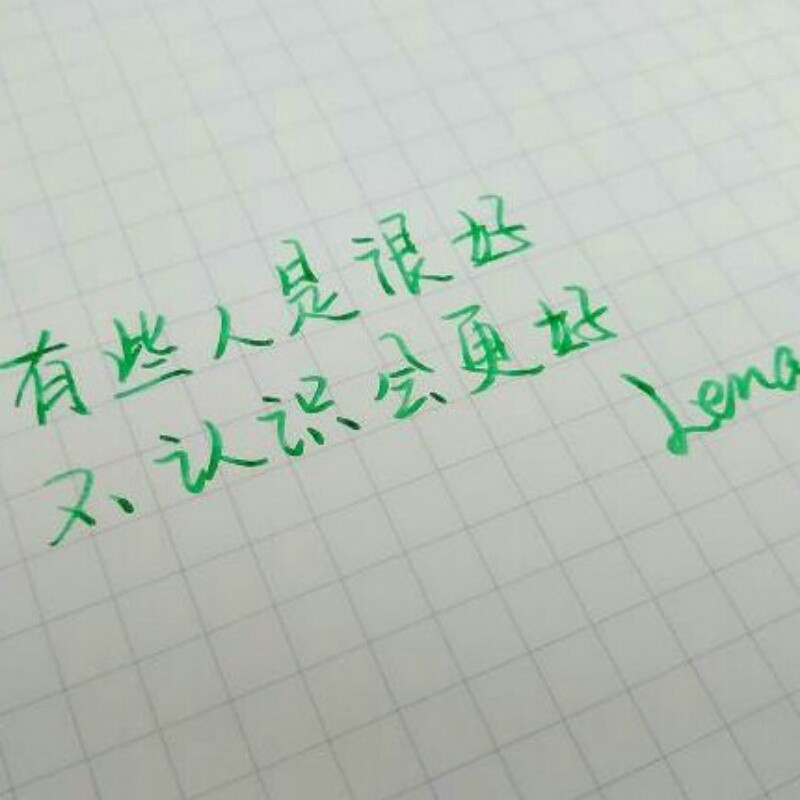 有些人是很好
不认识会更好
Lena